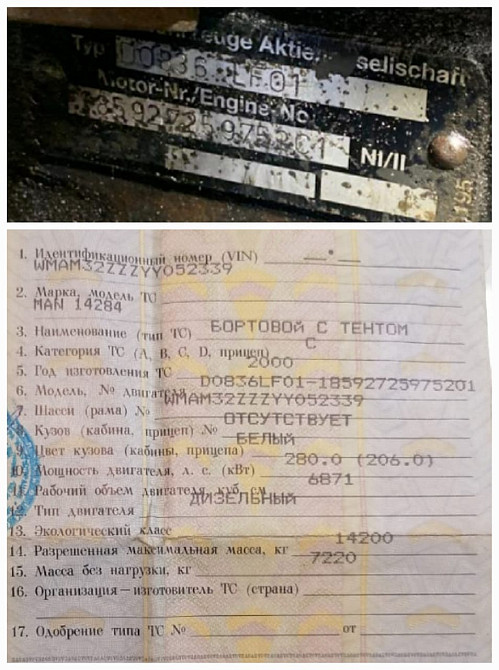 Aktie... sellschaft
Typ D0836 LF01
Motor-Nr./Engine-No
NI/II
1. Идентификационный номер (VIN) — * —
WMAM32ZZZYY052339
2. Марка, модель ТС
MAN 14284
3. Наименование (тип ТС) БОРТОВОЙ С ТЕНТОМ
4. Категория ТС (A, B, C, D, прицеп) C
5. Год изготовления ТС 2000
6. Модель, № двигателя D0836LF01-18592725975201
7. Шасси (рама) № WMAM32ZZZYY052339
8. Кузов (кабина, прицеп) № ОТСУТСТВУЕТ
9. Цвет кузова (кабины, прицепа) БЕЛЫЙ
10. Мощность двигателя, л. с. (кВт) 280.0 (206.0)
11. Рабочий объем двигателя, куб. см 6871
12. Тип двигателя ДИЗЕЛЬНЫЙ
13. Экологический класс
14. Разрешенная максимальная масса, кг 14200
15. Масса без нагрузки, кг 7220
16. Организация—изготовитель ТС (страна)
17. Одобрение типа ТС № от